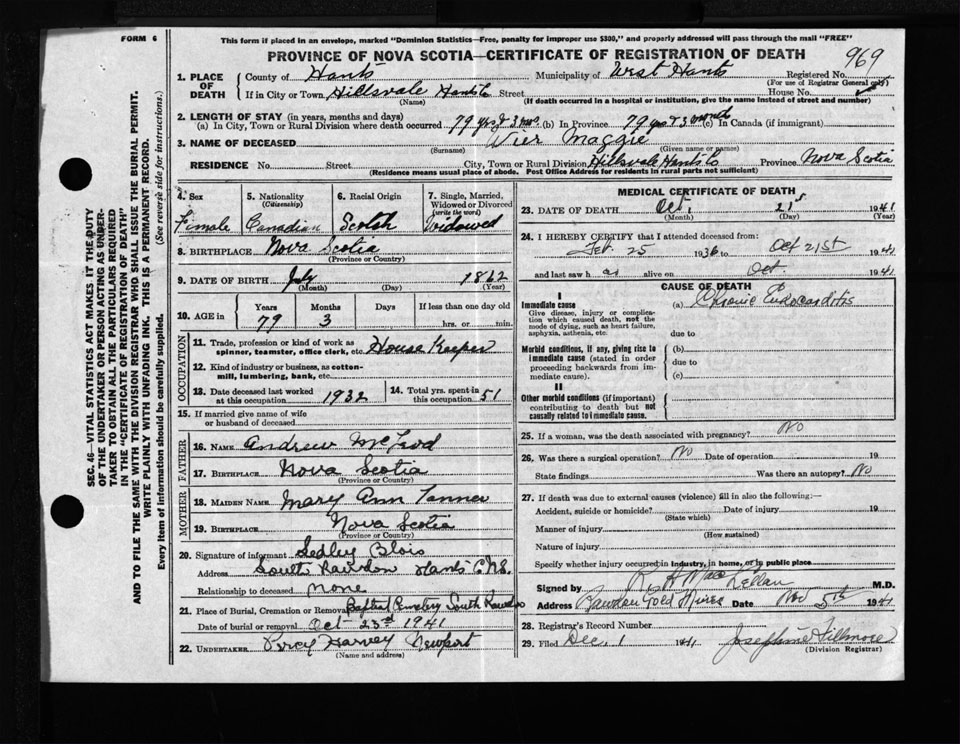 FORM 6
This form if placed in an envelope, marked "Dominion Statistics—Free, penalty for improper use $300," and properly addressed will pass through the mail "FREE"
PROVINCE OF NOVA SCOTIA—CERTIFICATE OF REGISTRATION OF DEATH
969
1. PLACE OF DEATH
County of Hants Municipality of West Hants Registered No.
(For use of Registrar General only)
If in City or Town Hillsvale Hants Co Street House No.
(Name) (If death occurred in a hospital or institution, give the name instead of street and number)
2. LENGTH OF STAY (in years, months and days)
(a) In City, Town or Rural Division where death occurred 79 yrs & 3 mos (b) In Province 79 yrs & 3 months (c) In Canada (if immigrant)
3. NAME OF DECEASED Wier Maggie
(Surname) (Given name or names)
RESIDENCE No. Street City, Town or Rural Division Hillsvale Hants Co Province Nova Scotia
(Residence means usual place of abode. Post Office Address for residents in rural parts not sufficient)
4. Sex 5. Nationality (Citizenship) 6. Racial Origin 7. Single, Married, Widowed or Divorced (write the word)
Female Canadian Scotch Widowed
8. BIRTHPLACE Nova Scotia
(Province or Country)
9. DATE OF BIRTH July 1862
(Month) (Day) (Year)
10. AGE in Years Months Days If less than one day old
79 3 hrs. or min.
OCCUPATION
11. Trade, profession or kind of work as spinner, teamster, office clerk, etc. House Keeper
12. Kind of industry or business, as cotton-mill, lumbering, bank, etc.
13. Date deceased last worked at this occupation 1932 14. Total yrs. spent in this occupation 51
15. If married give name of wife or husband of deceased
FATHER
16. NAME Andrew McLeod
17. BIRTHPLACE Nova Scotia
(Province or Country)
MOTHER
18. MAIDEN NAME Mary Ann Tanner
19. BIRTHPLACE Nova Scotia
(Province or Country)
20. Signature of informant Sedley Blois
Address South Rawdon Hants C. N.S.
Relationship to deceased None
21. Place of Burial, Cremation or Removal Baptist Cemetery South Rawdon
Date of burial or removal Oct 23rd 1941
22. UNDERTAKER Percy Harvey Newport
(Name and address)
MEDICAL CERTIFICATE OF DEATH
23. DATE OF DEATH Oct. 21st 1941
(Month) (Day) (Year)
24. I HEREBY CERTIFY that I attended deceased from:
Feb. 25 1936 Oct 21st 1941
and last saw h er alive on Oct. 1941
CAUSE OF DEATH
I
Immediate cause (a) Chronic Endocarditis
Give disease, injury or complication which caused death, not the mode of dying, such as heart failure, asphyxia, asthenia, etc.
due to
Morbid conditions, if any, giving rise to immediate cause (stated in order proceeding backwards from immediate cause).
(b)
due to
(c)
II
Other morbid conditions (if important) contributing to death but not causally related to immediate cause.
25. If a woman, was the death associated with pregnancy? No
26. Was there a surgical operation? No Date of operation 19
State findings Was there an autopsy? No
27. If death was due to external causes (violence) fill in also the following:—
Accident, suicide or homicide? Date of injury 19
(State which)
Manner of injury
(How sustained)
Nature of injury
Specify whether injury occurred in industry, in home, or in public place
Signed by R. H. MacLellan M.D.
Address Rawdon Gold Mines Date Nov 5th 1941
28. Registrar's Record Number
29. Filed Dec. 1 1941 Josephine Fillmore
(Division Registrar)
SEC. 46—VITAL STATISTICS ACT MAKES IT THE DUTY
OF THE UNDERTAKER OR PERSON ACTING AS UNDER-
TAKER "TO OBTAIN ALL THE PARTICULARS REQUIRED
IN THE "CERTIFICATE OF REGISTRATION OF DEATH"
AND TO FILE THE SAME WITH THE DIVISION REGISTRAR WHO SHALL ISSUE THE BURIAL PERMIT.
WRITE PLAINLY WITH UNFADING INK. THIS IS A PERMANENT RECORD.
Every item of information should be carefully supplied. (See reverse side for instructions.)